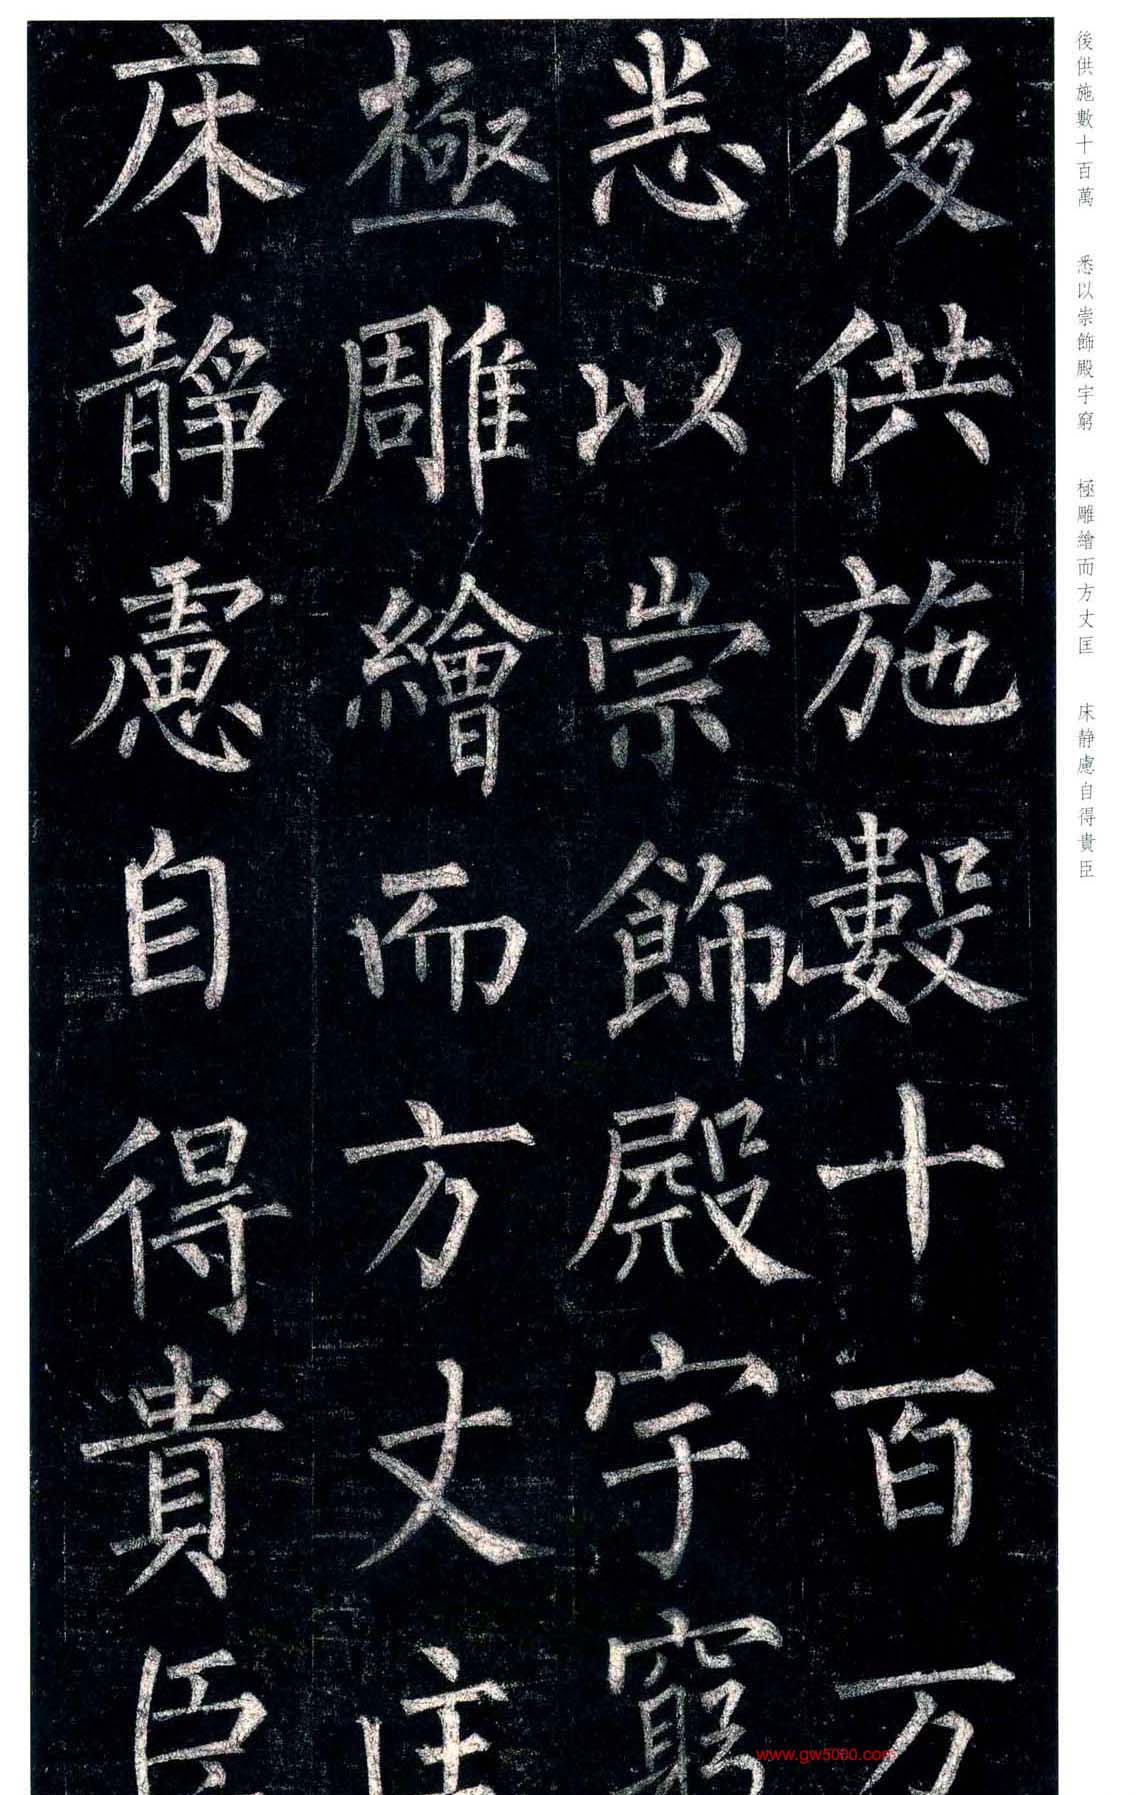 後供施數十百萬 悉以崇飾殿宇窮 極雕繪而方丈匡 床静慮自得貴臣
後供施數十百万
悉以崇飾殿宇窮
極雕繪而方丈匡
床靜慮自得貴臣
www.gw5000.com